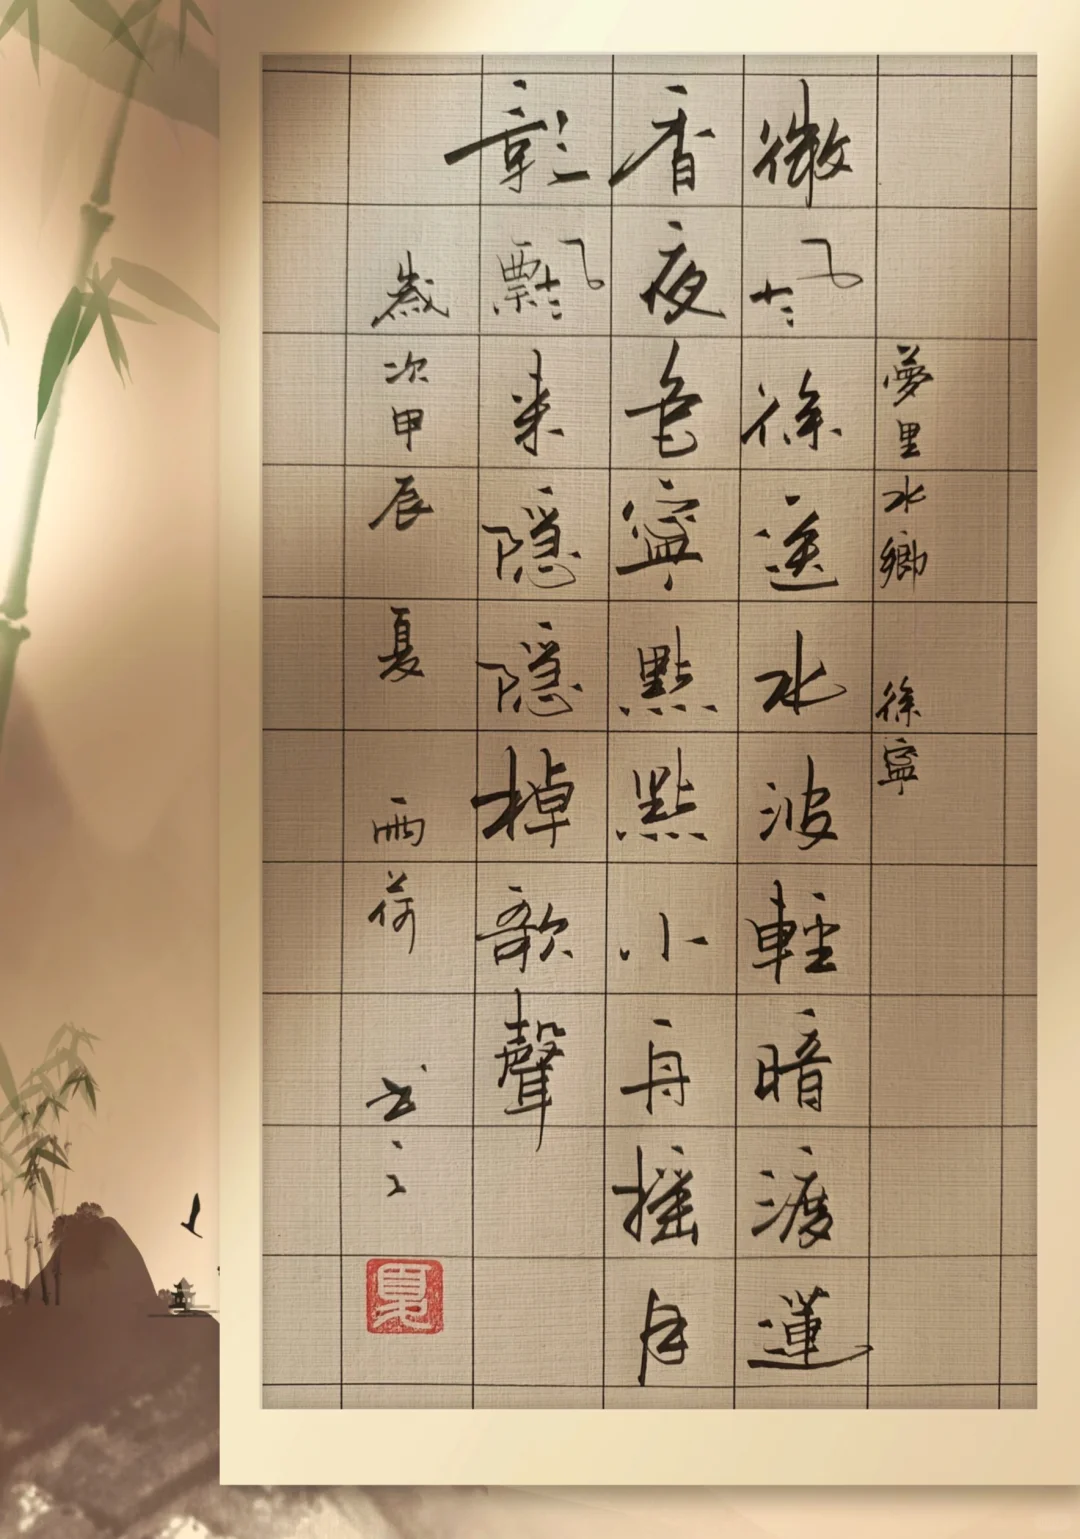 夢里水鄉 徐寧
微風徐送水波輕暗渡蓮
香夜色寧點點小舟搖月
影飄来隱隱棹歌聲
歲次甲辰 夏 雨荷 书之
夏